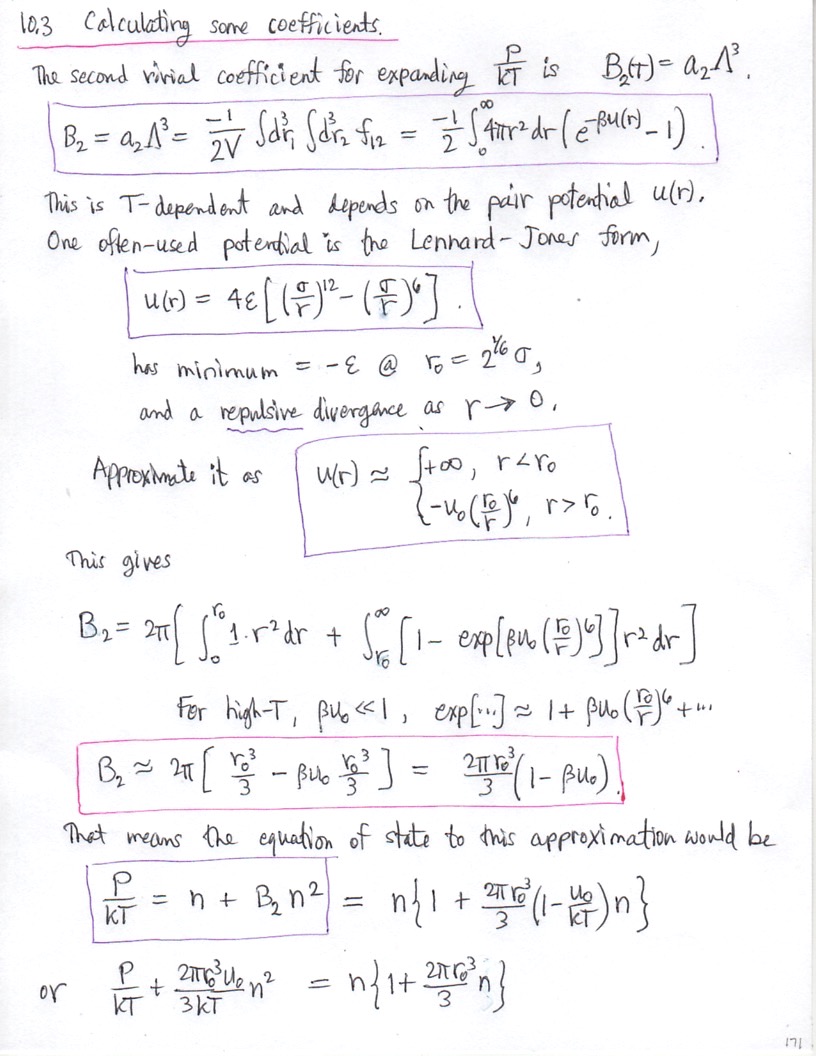 10.3 Calculating some coefficients.
The second virial coefficient for expanding P/kT is B₂(T) = a₂Λ³.
B₂ = a₂Λ³ = -1/2V ∫d³r₁ ∫d³r₂ f₁₂ = -1/2 ∫₀^∞ 4πr²dr (e^{-βu(r)} - 1).
This is T-dependent and depends on the pair potential u(r).
One often-used potential is the Lennard-Jones form,
u(r) = 4ε[(σ/r)¹² - (σ/r)⁶].
has minimum = -ε @ r₀ = 2^{1/6} σ,
and a repulsive divergence as r → 0.
Approximate it as u(r) ≈ { +∞, r < r₀
{ -u₀(r₀/r)⁶, r > r₀.
This gives
B₂ = 2π[ ∫₀^{r₀} 1·r²dr + ∫_{r₀}^∞ [1 - exp[βu₀(r₀/r)⁶]] r²dr ]
For high-T, βu₀ << 1, exp[...] ≈ 1 + βu₀(r₀/r)⁶ + ...
B₂ ≈ 2π[ r₀³/3 - βu₀ r₀³/3 ] = 2πr₀³/3 (1 - βu₀).
That means the equation of state to this approximation would be
P/kT = n + B₂n² = n{1 + 2πr₀³/3 (1 - u₀/kT)n}
or P/kT + 2πr₀³u₀/3kT n² = n{1 + 2πr₀³/3 n}
171